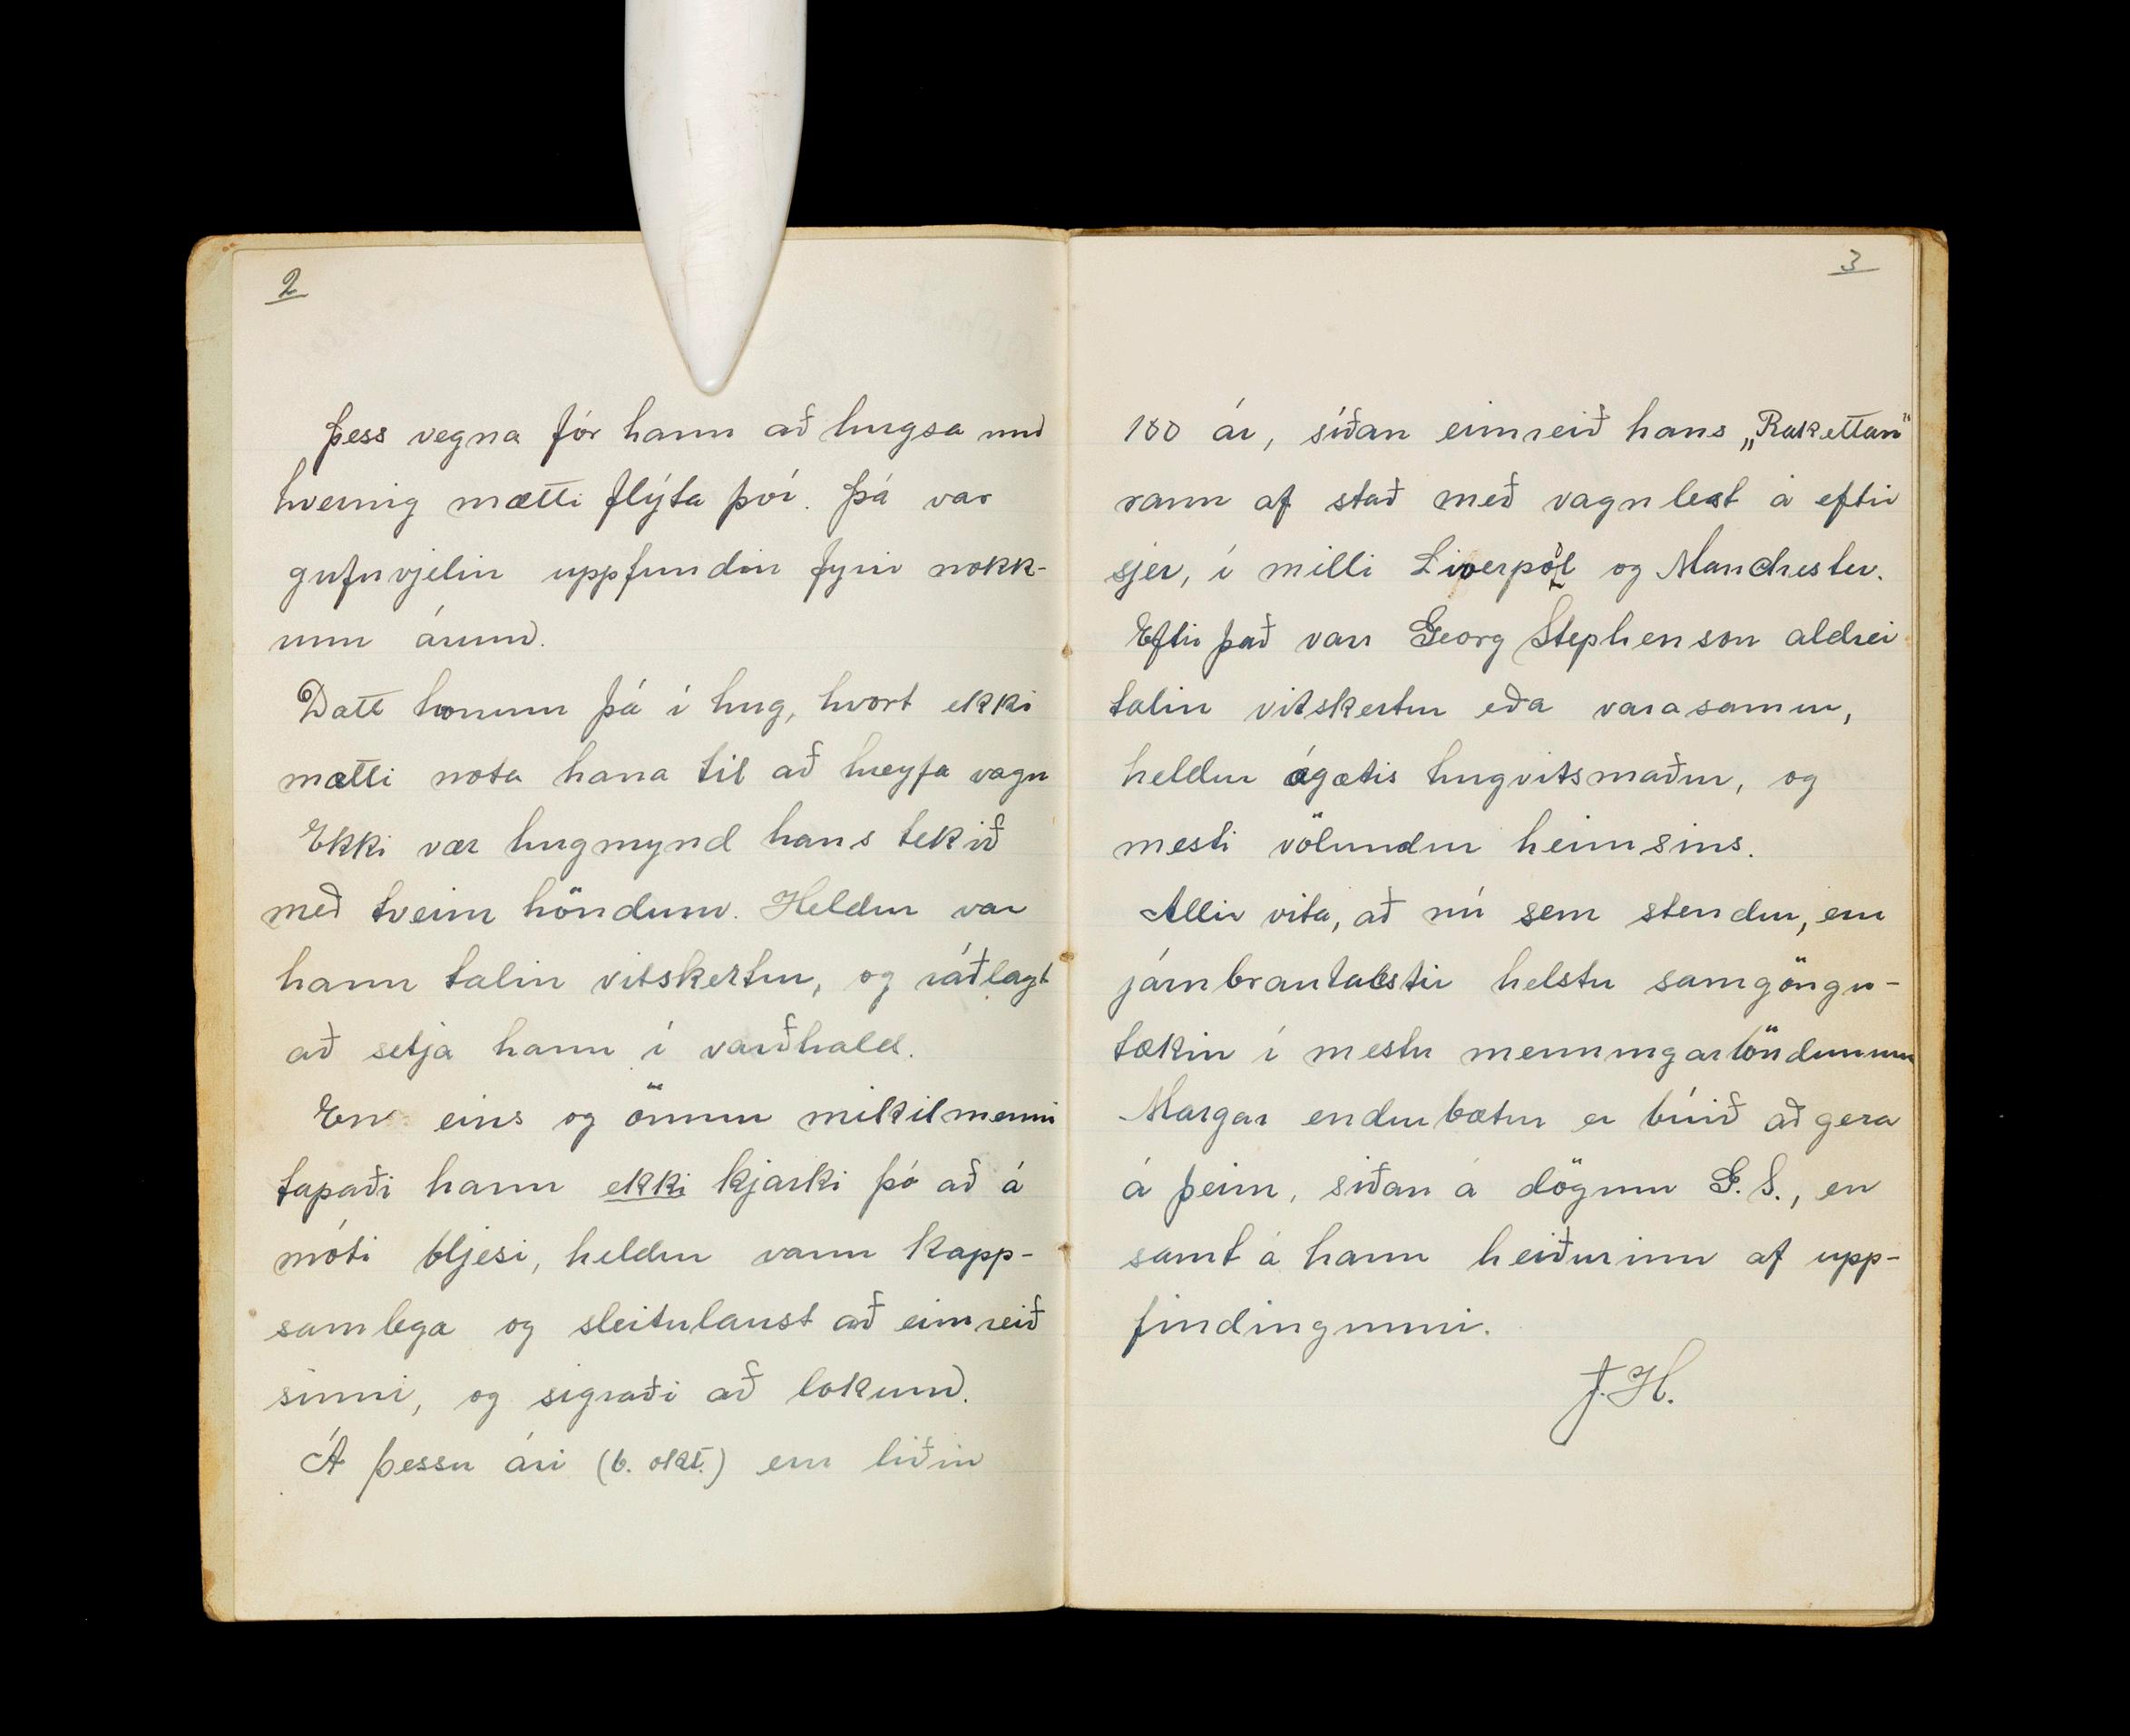 2
Þess vegna fór hann að hugsa um
hvernig mætti flýta því. Þá var
gufuvjelin uppfundin fyrir nokk-
urum árum.
Datt honum þá í hug, hvort ekki
mætti nota hana til að hreyfa vagn
Ekki var hugmynd hans tekið
með tveim höndum. Heldur var
hann talin vitskertur, og ráðlagt
að setja hann í varðhald.
En eins og önnur mikilmenni
tapaði hann ekki kjarki þó að á
móti bljesi, heldur vann kapp-
samlega og sleitulaust að eimreið
sinni, og sigraði að lokum.
Á þessu ári (6. okt.) eru liðin
3
100 ár, síðan eimreið hans „Rakettan"
rann af stað með vagnlest á eftir
sjer, í milli Liverpól og Manchester.
Eftir það var Georg Stephenson aldrei
talin vitskertur eða varasamur,
heldur ágætis hugvitsmaður, og
mesti völundur heimsins.
Allir vita, að nú sem stendur, eru
járnbrautalestir helstu samgöngu-
tækin í mestu menningarlöndunum
Margar endurbætur er búið að gera
á þeim, síðan á dögum G. S., en
samt á hann heiðurinn af upp-
findingunni.
J. H.